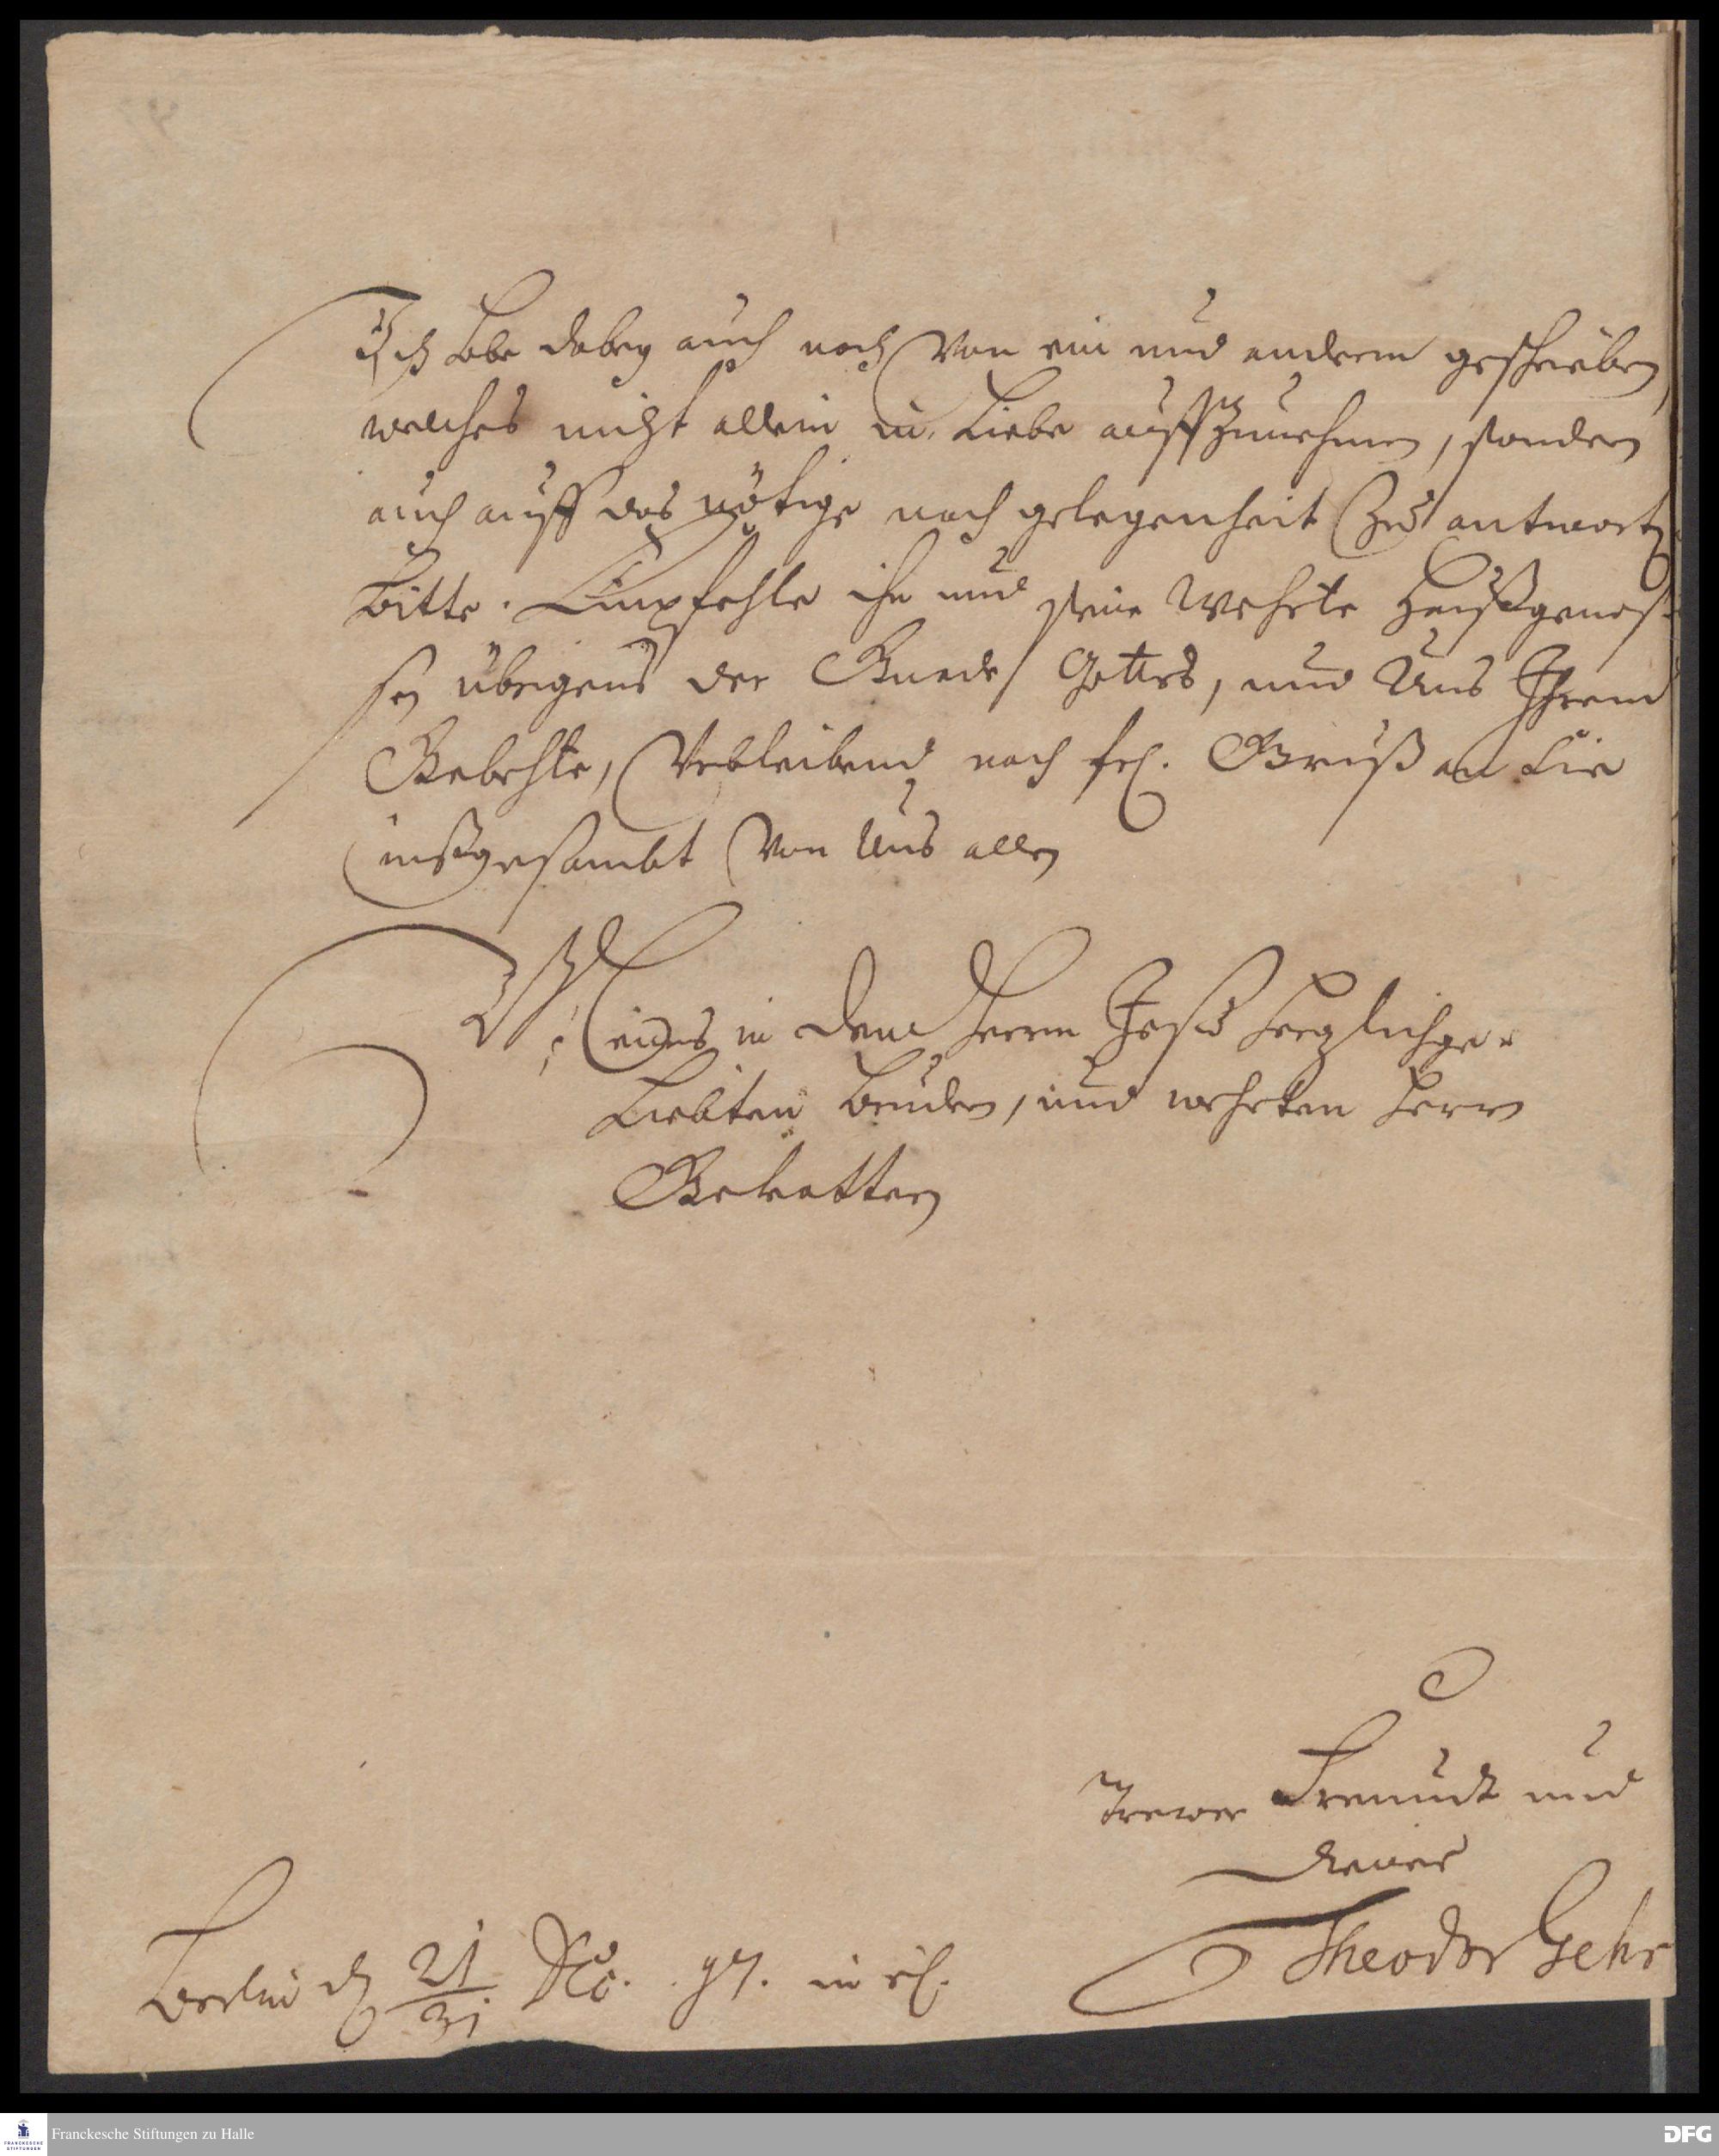 Ich habe dabey auch noch von ein und andrem geschrieben,
welches nicht allein in Liebe auffzunehmen, sondern
auch auff das nötige nach gelegenheit zu antworten
bitte. Empfehle ihn und seine wehrte Haußgenos-
sen übrigens der Gnade Gottes, und Uns Ihrem
Gebehte, Verbleibend nach frl. Gruß an Sie
inßgesambt von Uns allen
in dem Herrn Jesu hertzlichge-
Liebten Bruders, und wehrten Herrn
Gevattern
Trewer Freundt und
diener
Theodor Gehr
Berlin den 21/31 Dec. 97. in eyl.
Franckesche Stiftungen zu Halle
DFG